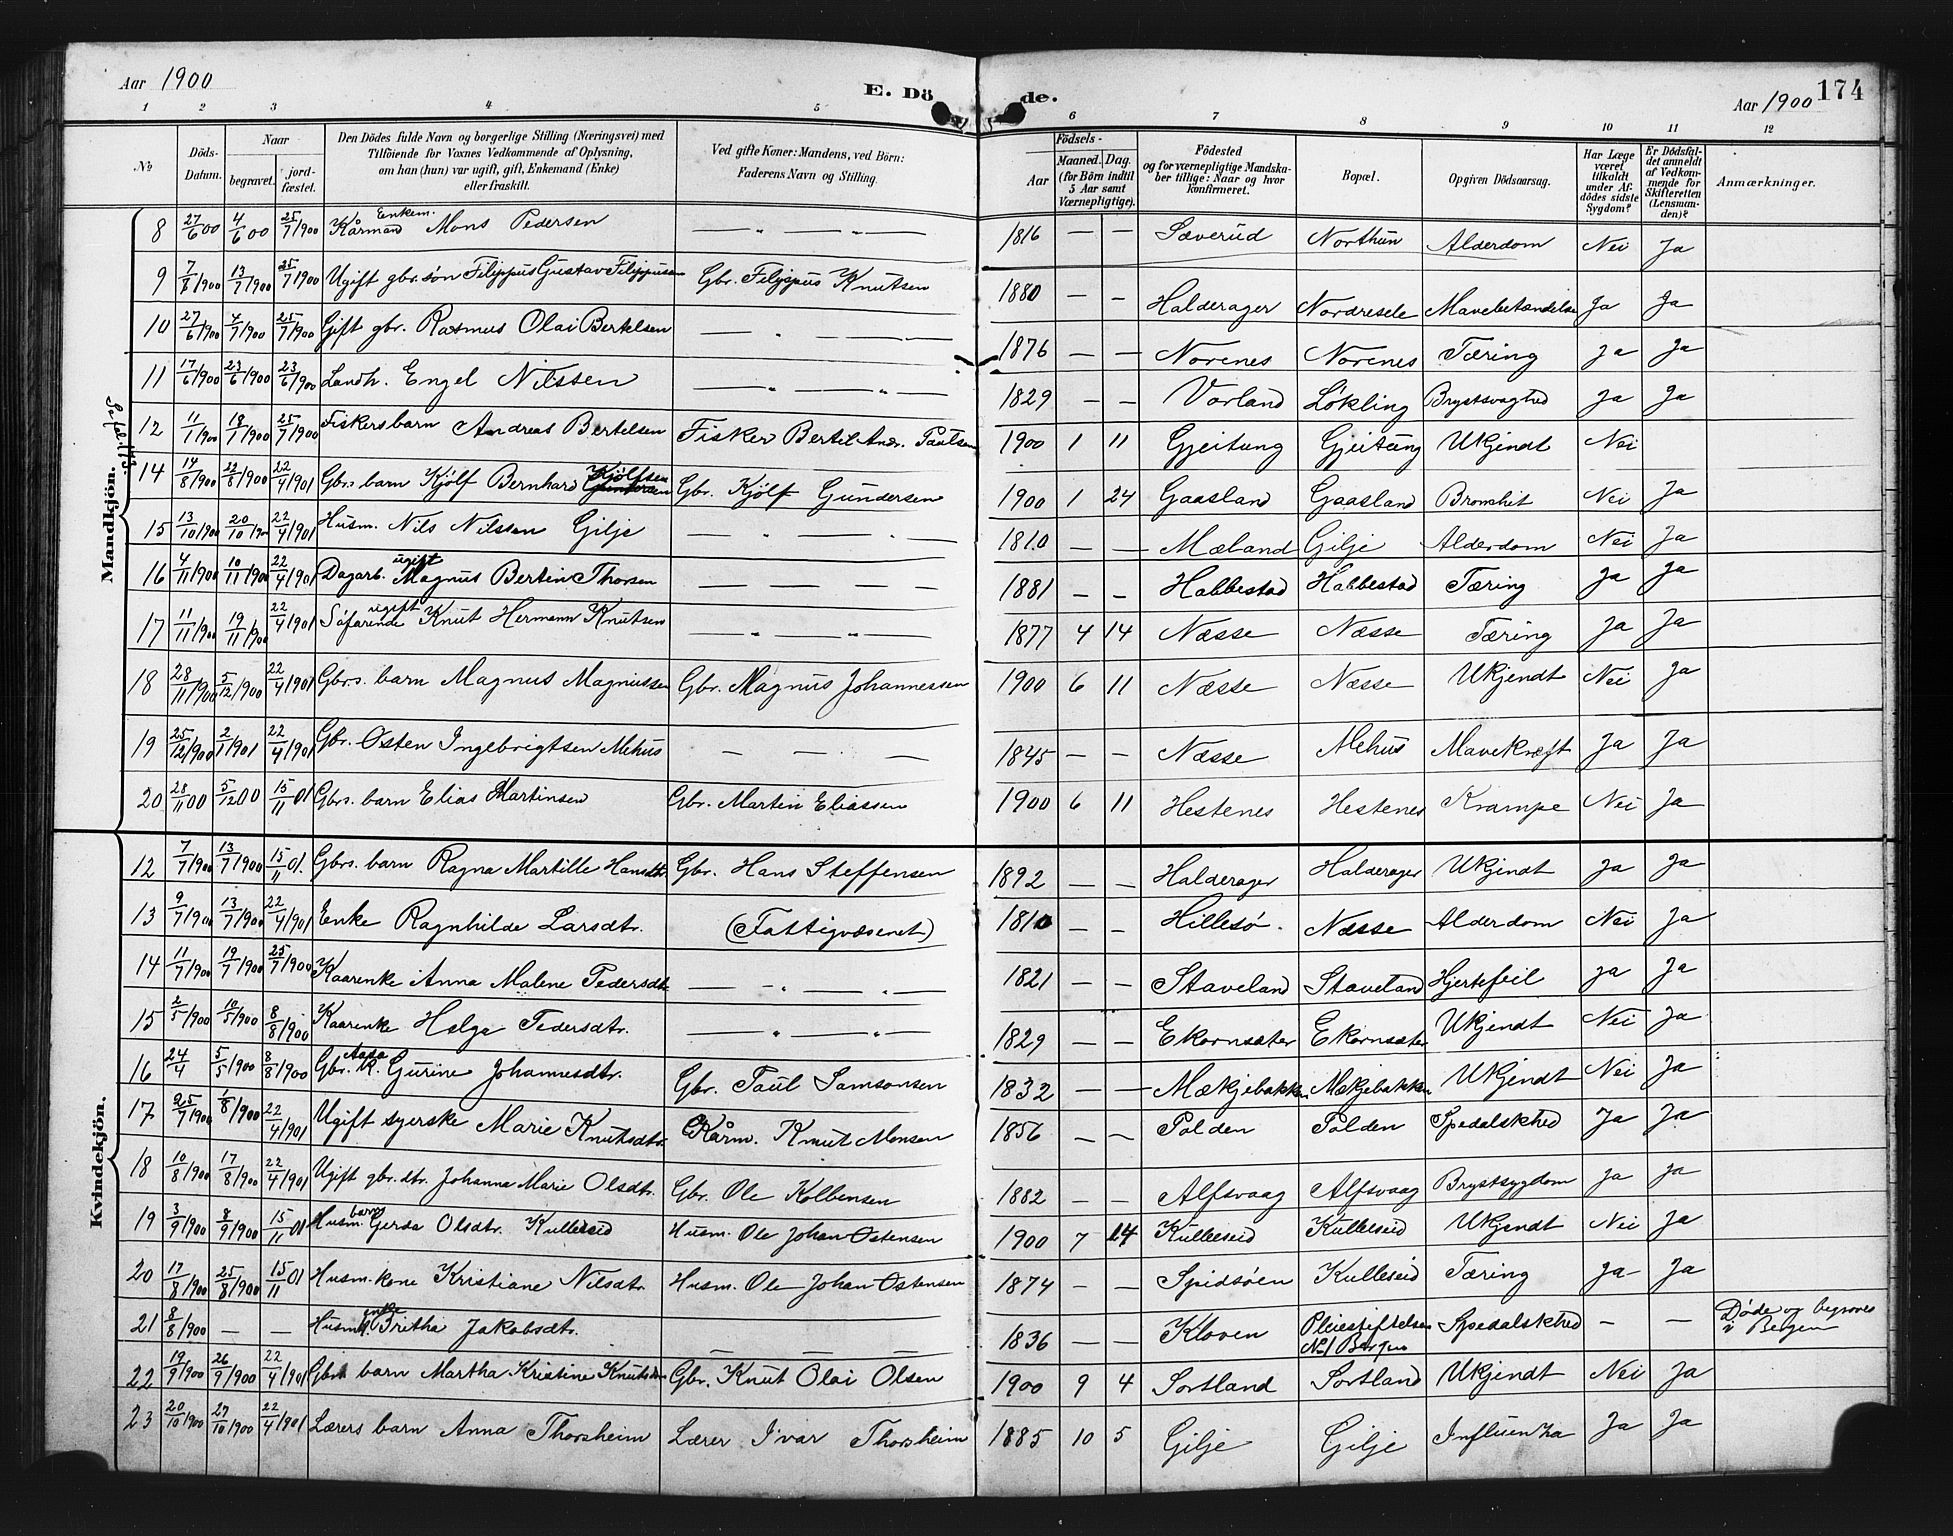 Aar 1900
E. Döde.
Aar 1900
174
1 2 3 4 5 6 7 8 9 10 11 12
No
Döds-Datum.
Naar
begravet.
jordfæstet.
Den Dödes fulde Navn og borgerlige Stilling (Næringsvei) med
Tilföiende for Voxnes Vedkommende af Oplysning,
om han (hun) var ugift, gift, Enkemand (Enke)
eller fraskilt.
Ved gifte Koner: Mandens, ved Börn:
Faderens Navn og Stilling.
Födsels-
Aar
Maaned. Dag.
(for Börn indtil
5 Aar samt
Værnepligtige).
Födested
og for værnepligtige Mandskaber tillige: Naar og hvor
konfirmeret.
Bopæl.
Opgiven Dödsaarsag.
Har Læge været tilkaldt under Afdödes sidste Sygdom?
Er Dödsfaldet anmeldt af Vedkommende for Skifteretten (Lensmanden)?
Anmærkninger.
Mandkjön.
8 27/6 00 4/6 00 25/7 1900 Kårmand Enkem. Mons Pedersen — 1816 — — Sæverud Northun Alderdom Nei Ja
9 7/8 1900 13/7 1900 25/7 1900 Ugift gbr. søn Filippus Gustav Filippusen Gbr. Filippus Knutsen 1880 — — Halderager Nordresele Mavebetændelse Ja Ja
10 27/6 1900 4/7 1900 25/7 1900 Gift gbr. Rasmus Olai Bertelsen — 1876 — — Norenes Norenes Tæring Ja Ja
11 17/6 1900 23/6 1900 23/6 1900 Landh. Engel Nilssen — 1829 — — Vorland Løkling Brystsvaghed Ja Ja
12 11/1 1900 18/1 1900 25/7 1900 Fiskersbarn Andreas Bertelsen Fisker Bertil Andr. Paulsen 1900 1 11 Gjeitung Gjeitung Ukjendt Nei
14 14/8 1900 22/8 1900 22/4 1901 Gbrs barn Kjølf Bernhard Kjølfsen Gbr. Kjølf Gundersen 1900 1 24 Gaasland Gaasland Bronchit Nei Ja
15 13/10 1900 20/10 1900 22/4 1901 Husm. Nils Nilssen Gilje — 1810 — — Mæland Gilje Alderdom Nei Ja
16 4/11 1900 10/11 1900 22/4 1901 Dagarb. ugift Magnus Bertin Thorsen — 1881 — — Habbestad Habbestad Tæring Ja Ja
17 11/11 1900 19/11 1900 22/4 1901 Søfarende ugift Knut Hermann Knutsen — 1877 4 14 Næsse Næsse Tæring Ja Ja
18 28/11 1900 5/12 1900 22/4 1901 Gbrs. barn Magnus Magnussen Gbr. Magnus Johannessen 1900 6 11 Næsse Næsse Ukjendt Nei Ja
19 25/12 1900 2/1 1901 22/4 1901 Gbr. Østen Ingebrigtsen Mehus — 1845 — — Næsse Mehus Mavekræft Ja Ja
20 28/11 00 5/12 00 15/11 01 Gbrs. barn Elias Martinsen Gbr. Martin Eliassen 1900 6 11 Hestenes Hestenes Krampe Nei Ja
Kvindekjön.
12 7/7 1900 13/7 1900 15/11 01. Gbrs. barn Ragna Martille Hansdtr Gbr. Hans Steffensen 1892 — — Halderager Halderager Ukjendt Ja Ja
13 9/7 1900 13/7 1900 22/4 1901 Enke Ragnhilde Larsdtr. (Fattigvæsenet) 1810 — — Hillesø. Næsse Alderdom Nei Ja
14 11/7 1900 19/7 1900 25/7 1900 Kaarenke Anna Malene Pedersdtr — 1821 — — Staveland Staveland Hjertefeil Ja Ja
15 2/5 1900 10/5 1900 8/8 1900 Kaarenke Helga Pedersdtr. — 1829 — — Ekornsæter Ekornsæter Ukjendt Nei Ja
16 24/4 5/5 1900 8/8 1900 Gbr. k. Gurine Johannesdtr. Gbr. Paul Samsonsen 1832 — — Mækjebakken Mækjebakken Ukjendt Nei Ja
17 25/7 1900 1/8 1900 22/4 1901 Ugift syerske Marie Knutsdtr. Kårm. Knut Monsen 1856 — — Polden Polden Spedalskhed Ja Ja
18 10/8 1900 17/8 1900 22/4 1901 Ugift gbr. dtr. Johanna Marie Olsdtr. Gbr. Ole Kolbensen 1882 — — Alfsvaag Alfsvaag Brystsygdom Ja Ja
19 3/9 1900 8/9 1900 15/11 01 Husm. barn Gerda Olsdtr. Kulleseid Husm. Ole Johan Østensen 1900 7 14 Kulleseid Kulleseid Ukjendt Nei Ja
20 17/8 1900 25/8 1900 15/11 01 Husm. kone Kristiane Nilsdtr. Husm. Ole Johan Østensen 1874 — — Spidsøen Kulleseid Tæring Ja Ja
21 8/8 1900 — — Husm. enke Britha Jakobsdtr. — 1836 — — Kloven Pleiestiftelsen No 1 Bergen Spedalskhed — — Døde og begraves i Bergen
22 19/9 1900 26/9 1900 22/4 1901 Gbrs barn Martha Kristine Knutsdtr Gbr. Knut Olai Olsen 1900 9 4 Sortland Sortland Ukjendt Nei Ja
23 20/10 1900 27/10 1900 22/4 1901 Lærers barn Anna Thorsheim Lærer Ivar Thorsheim 1885 10 5 Gilje Gilje Influenza Ja Ja